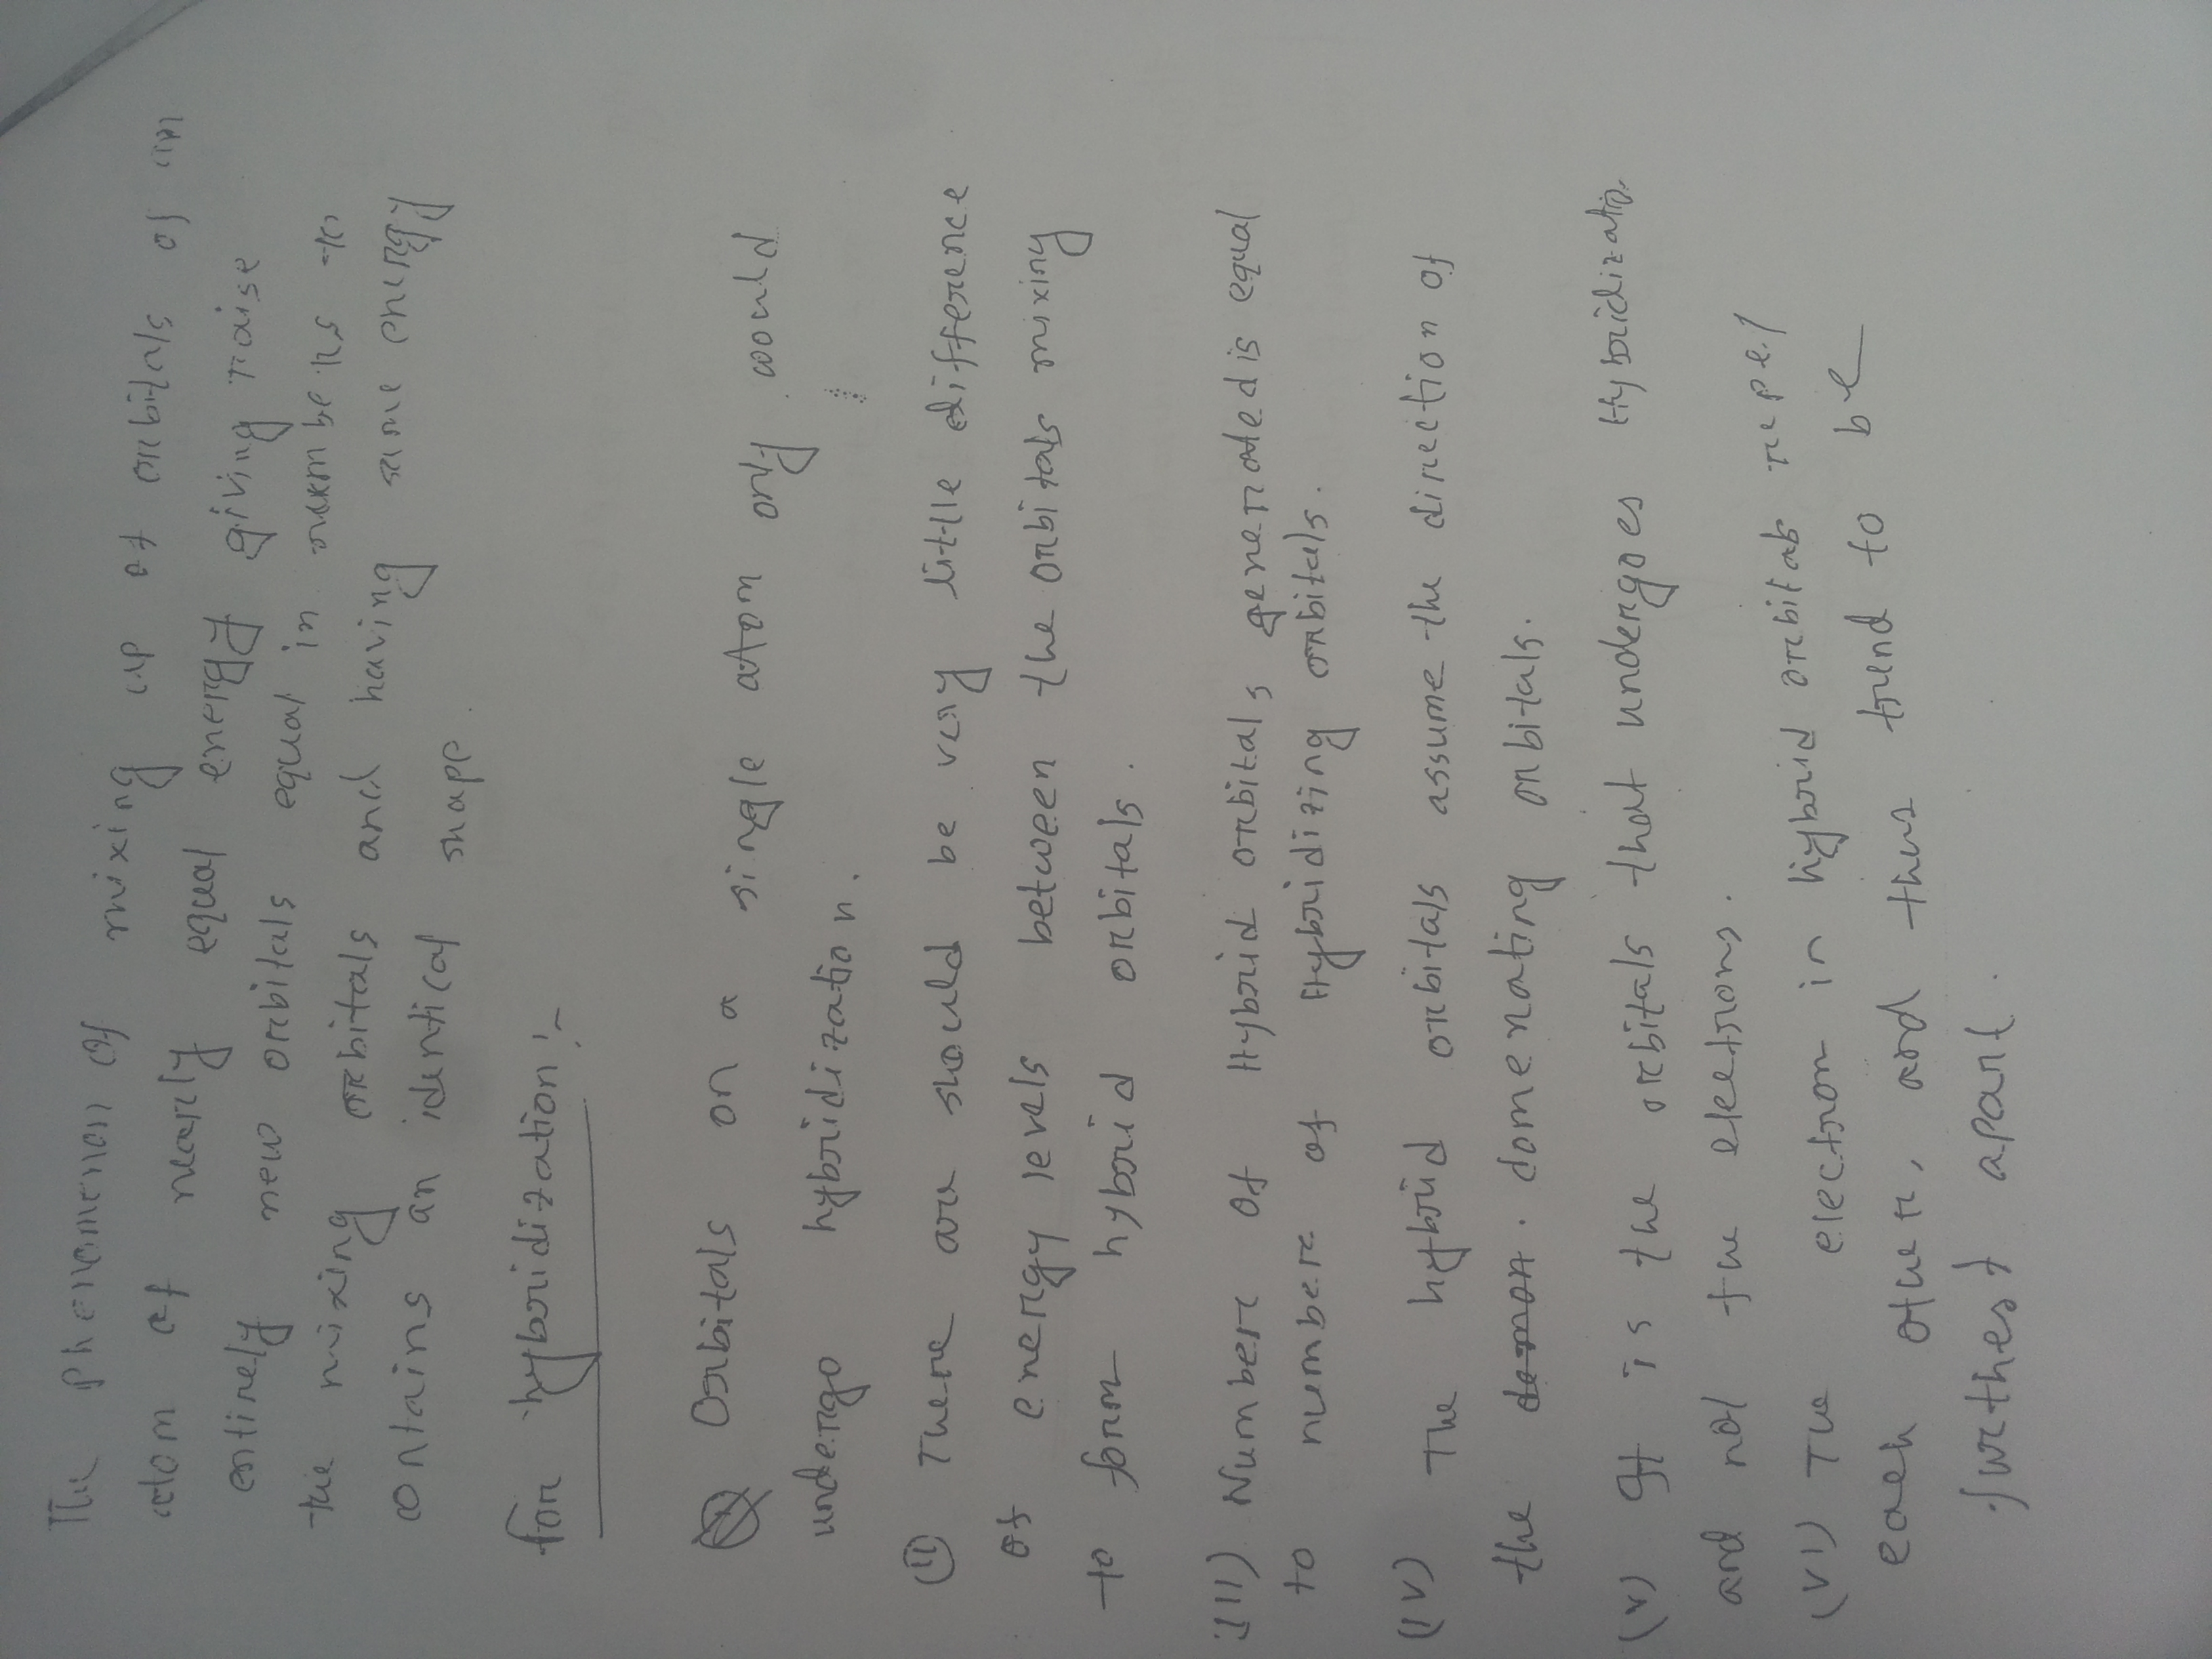 The phenomenon of mixing up of orbitals of an
atom of nearly equal energy giving raise
entirely new orbitals equal in numbers to
the mixing orbitals and having same energy
contains an identical shape.
for hybridization :-
Orbitals on a single atom only would
undergo hybridization.
(II) There are should be very little difference
of energy levels between the orbitals mixing
to form hybrid orbitals.
III) Number of Hybrid orbitals generated is equal
to number of Hybridizing orbitals.
(IV) The hybrid orbitals assume the direction of
the demon. domenating orbitals.
(V) It is the orbitals that undergoes Hybridizatio
and not the electrons.
(VI) The electron in hybrid orbitals repel
each other, and thus trend to be
furthest apart.